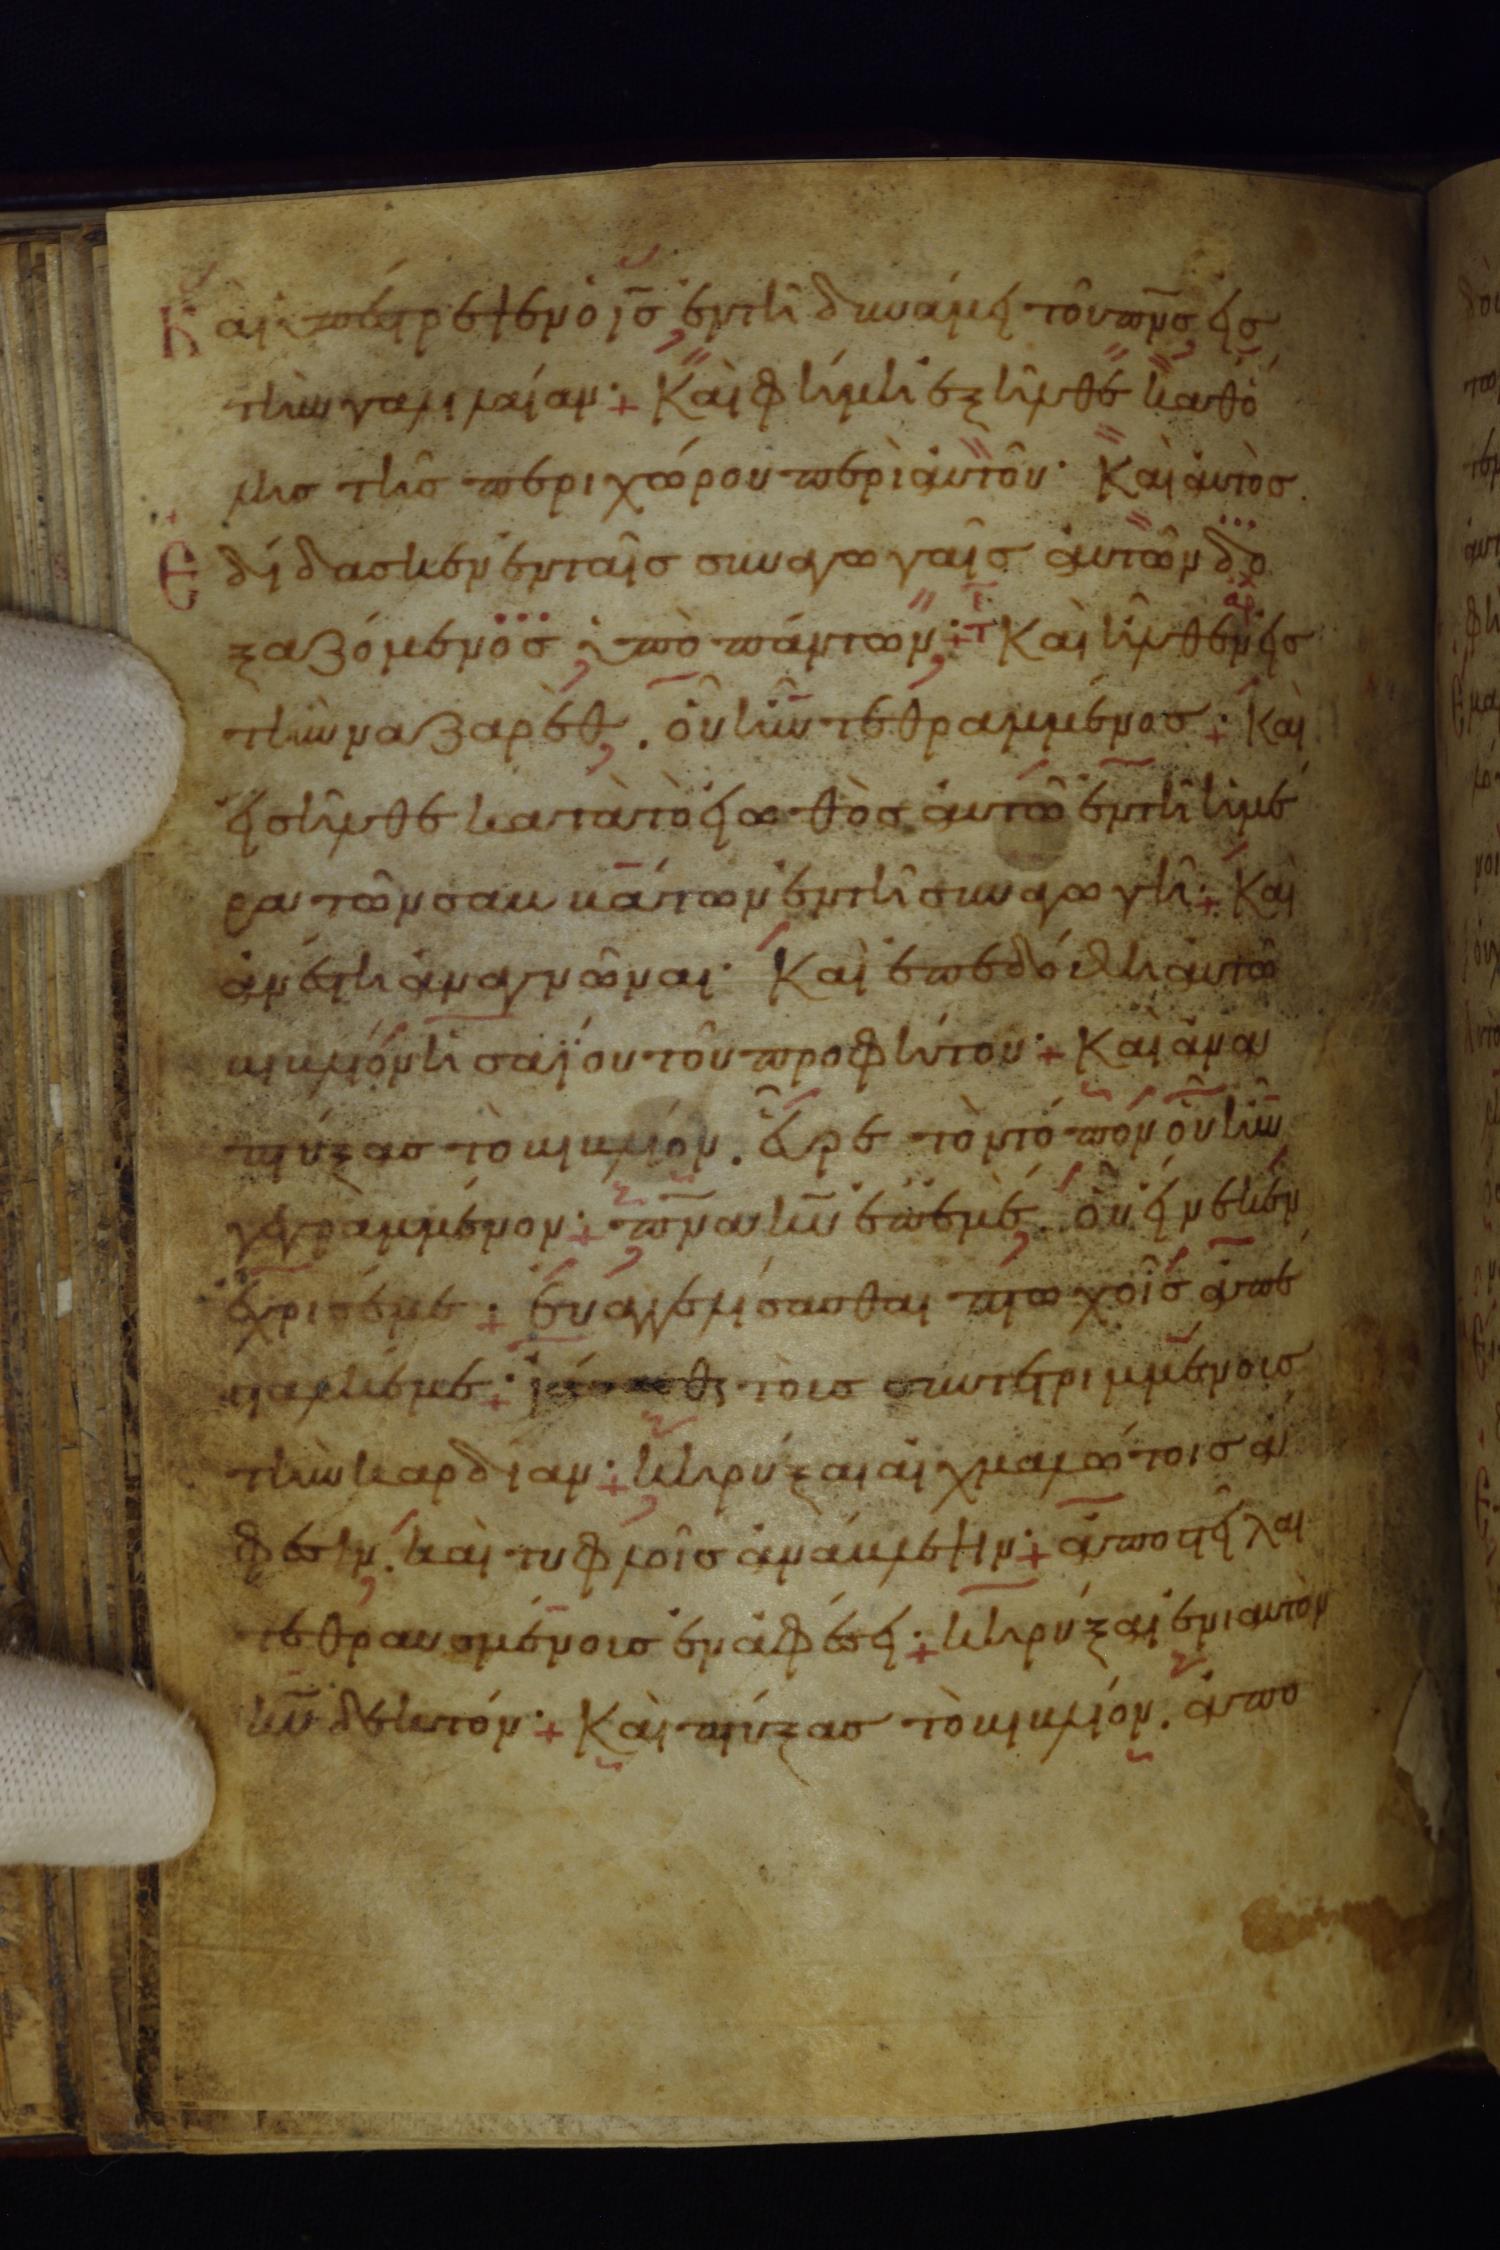 Καὶ ὑπέστρεψεν ὁ ις ἐν τῆ δυνάμει τοῦ πνς εἰς
τὴν γαλιλαίαν· + Καὶ φήμη ἐξῆλθε καθό
λης τῆς περιχώρου περὶ ἀυτοῦ· Καὶ ἀυτὸς
Ἐδίδασκεν ἐν ταῖς συναγωγαῖς ἀυτῶν δο
ξαζόμενος ὑπὸ πάντων· + Καὶ ἦλθεν εἰς
τὴν ναζαρὲθ, οὗ ἦν τεθραμμένος· + Καὶ
εἰσῆλθε κατὰ τὸ εἰωθὸς ἀυτῶ ἐν τῆ ἡμέ
ρα τῶν σαββάτων ἐν τῆ συναγωγῆ· + Καὶ
ἀνέστη ἀναγνῶναι· Καὶ ἐπεδόθη ἀυτῶ
βιβλίον ἠσαΐου τοῦ προφήτου· + Καὶ ἀνα
πτύξας τὸ βιβλίον. εὗρε τὸν τόπον οὗ ἦν
γεγραμμένον· + πνα κυ ἐπ ἐμέ. οὗ εἵνεκεν
ἔχρισέ με· + ἐυαγγελίσασθαι πτωχοῖς ἀπέ
σταλκέ με· + ἰάσασθαι τοῖς συντετριμμένοις
τὴν καρδίαν· + κηρύξαι αἰχμαλώτοις ἄ
φεσιν. καὶ τυφλοῖς ἀνάβλεψιν· + ἀποστεῖλαι
τεθραυσμένοις ἐν ἀφέσει· + κηρύξαι ἐνιαυτὸν
κυ δεκτόν· + Καὶ πτύξας τὸ βιβλίον. ἀπο